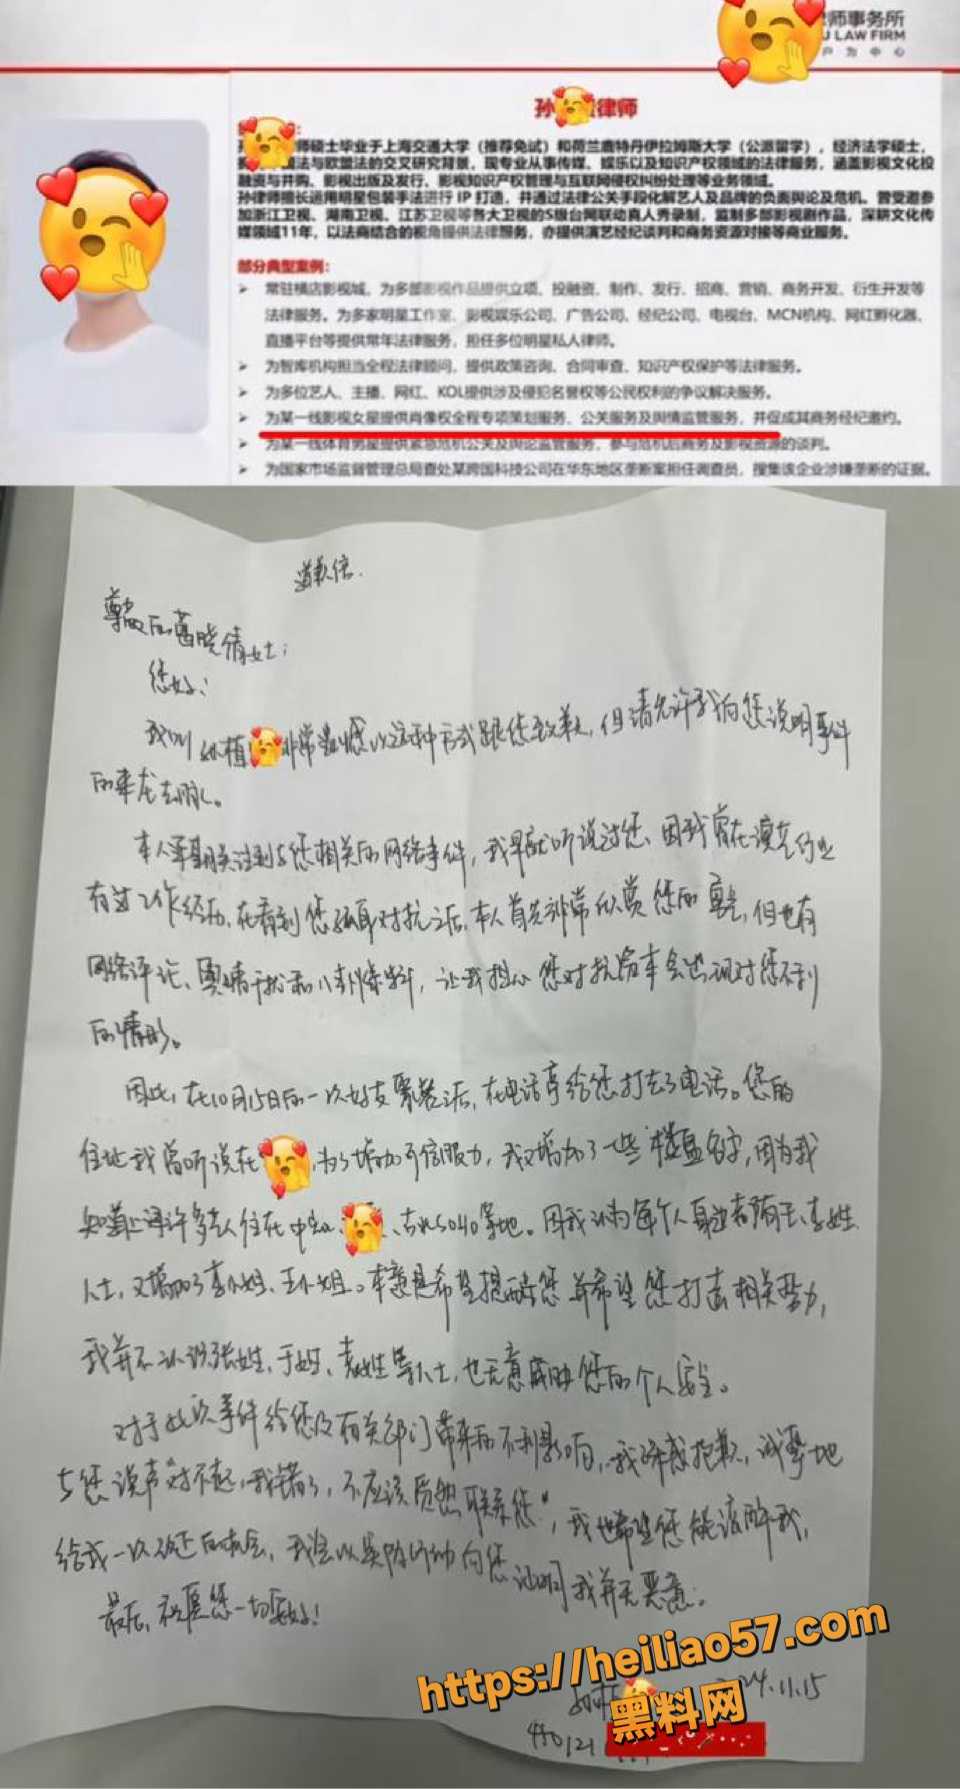 师事务所
U LAW FIRM
户为中心
孙 律师
师硕士毕业于上海交通大学（推荐免试）和荷兰鹿特丹伊拉姆斯大学（公派留学），经济法学硕士，
法与欧盟法的交叉研究背景，现专业从事传媒、娱乐以及知识产权领域的法律服务，涵盖影视文化投
融资与并购、影视出版及发行、影视知识产权管理与互联网侵权纠纷处理等业务领域。
孙律师擅长运用明星包装手法进行 IP 打造，并通过法律公关手段化解艺人及品牌的负面舆论及危机。曾受邀参
加浙江卫视、湖南卫视、江苏卫视等各大卫视的S级台网联动真人秀录制，监制多部影视剧作品，深耕文化传
媒领域11年，以法商结合的视角提供法律服务，亦提供演艺经纪谈判和商务资源对接等商业服务。
部分典型案例：
常驻横店影视城，为多部影视作品提供立项、投融资、制作、发行、招商、营销、商务开发、衍生开发等
法律服务。为多家明星工作室、影视娱乐公司、广告公司、经纪公司、电视台、MCN机构、网红孵化器、
直播平台等提供常年法律服务，担任多位明星私人律师。
为智库机构担当全程法律顾问，提供政策咨询、合同审查、知识产权保护等法律服务。
为多位艺人、主播、网红、KOL提供涉及侵犯名誉权等公民权利的争议解决服务。
为某一线影视女星提供肖像权全程专项策划服务、公关服务及舆情监管服务，并促成其商务经纪邀约。
为某一线体育男星提供紧急危机公关及舆论监管服务，参与危机后商务及影视资源的谈判。
为国家市场监督管理总局查处某跨国科技公司在华东地区垄断案担任调查员，搜集该企业涉嫌垄断的证据。
道歉信.
尊敬的葛晓倩女士：
您好！
我叫孙植 非常遗憾以这种方式跟您致歉，但请允许我向您说明事件
的来龙去脉。
本人早期关注到与您相关的网络事件，我早就听说过您、因我曾在演艺行业
有过工作经历，在看到您孤身对抗之后，本人首先非常欣赏您的勇气，但也有
网络评论、舆情干扰和八卦爆料，让我担心您对抗 会出现对您不利
的情形。
因此，在10月15日的一次好友聚餐之后，在电话亭给您打去了电话。您的
住址我曾听说在 ，为了增加可信服力，我又增加了一些楼盘名字，因为我
知道上海许多艺人住在中 、古北5040等地。因我认为每个人身边都有王、李姓
人士，又增加了李小姐、王小姐。本意是希望提醒您并希望您打击相关势力，
我并不认识张姓、于姓、袁姓等人士，也无意威胁您的个人安全。
对于此次事件给您及有关部门带来的不利影响，我深感抱歉，诚挚地
与您说声“对不起，我错了，不应该贸然联系您”，我也希望您能谅解我，
给我一次改正的机会，我会以实际行动向您证明我并无恶意。
最后，祝愿您一切安好！
https://heiliao57.com
24.11.15
黑料网